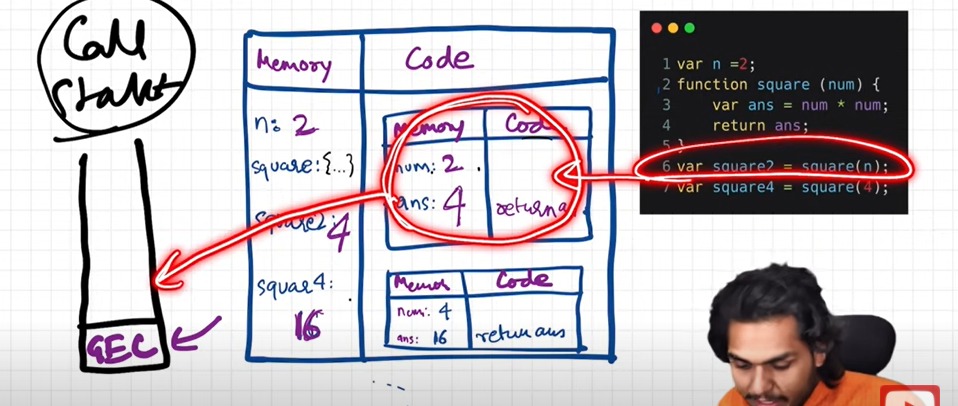 Call
Stakt
GEC
Memory
Code
n: 2
square:{...}
square2:
4
squar4:
16
Memory
Code
num: 2
ans: 4
return a
Memor
Code
num: 4
ans: 16
return ans
...
1 var n =2;
2 function square (num) {
3 var ans = num * num;
4 return ans;
5 }
6 var square2 = square(n);
7 var square4 = square(4);